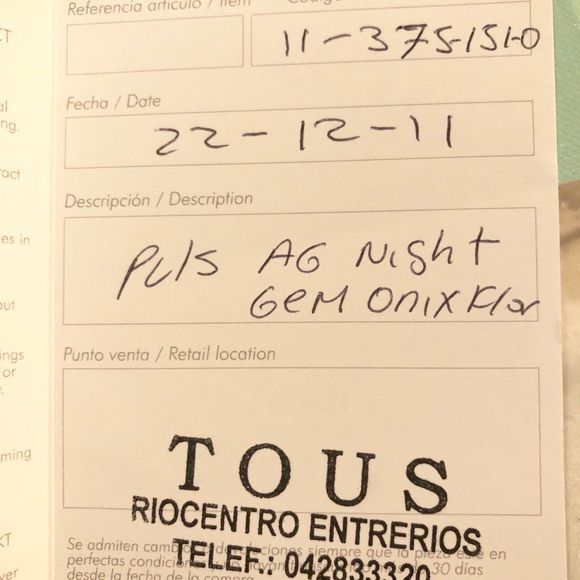 Referencia artículo / Item
11-375-151-0
Fecha / Date
22-12-11
Descripción / Description
Puls AG Night
Gem Onix Flor
Punto venta / Retail location
TOUS
RIOCENTRO ENTRERIOS
TELEF.: 042833320
Se admiten siempre que la pieza esté en
perfectas 30 días
desde la fecha de la compra